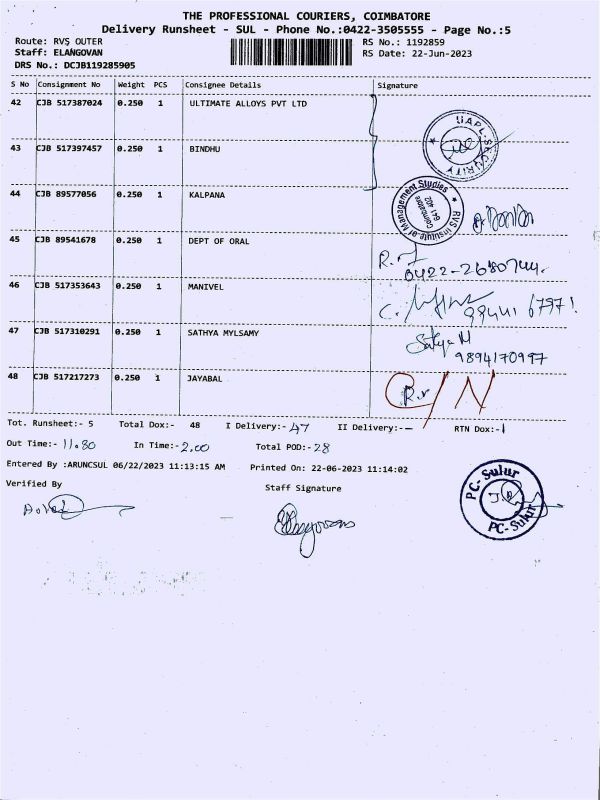 THE PROFESSIONAL COURIERS, COIMBATORE
Delivery Runsheet - SUL - Phone No.:0422-3505555 - Page No.:5
Route: RVS OUTER RS No.: 1192859
Staff: ELANGOVAN RS Date: 22-Jun-2023
DRS No.: DCJB119285905
S No Consignment No Weight PCS Consignee Details Signature
42 CJB 517387024 0.250 1 ULTIMATE ALLOYS PVT LTD
UAPL-SECURITY
43 CJB 517397457 0.250 1 BINDHU
44 CJB 89577056 0.250 1 KALPANA
RVS Institute of Management Studies
Coimbatore
641 402
45 CJB 89541678 0.250 1 DEPT OF ORAL
0422-2680744.
46 CJB 517353643 0.250 1 MANIVEL
C. 99441 67971
47 CJB 517310291 0.250 1 SATHYA MYLSAMY
Sathya M
9894170997
48 CJB 517217273 0.250 1 JAYABAL
C/N
Tot. Runsheet:- 5 Total Dox:- 48 I Delivery:- 47 II Delivery:-- RTN Dox:-1
Out Time:- 11.80 In Time:- 2.00 Total POD:- 28
Entered By :ARUNCSUL 06/22/2023 11:13:15 AM Printed On: 22-06-2023 11:14:02
Verified By Staff Signature
PC- Sulur
PC- Sulur